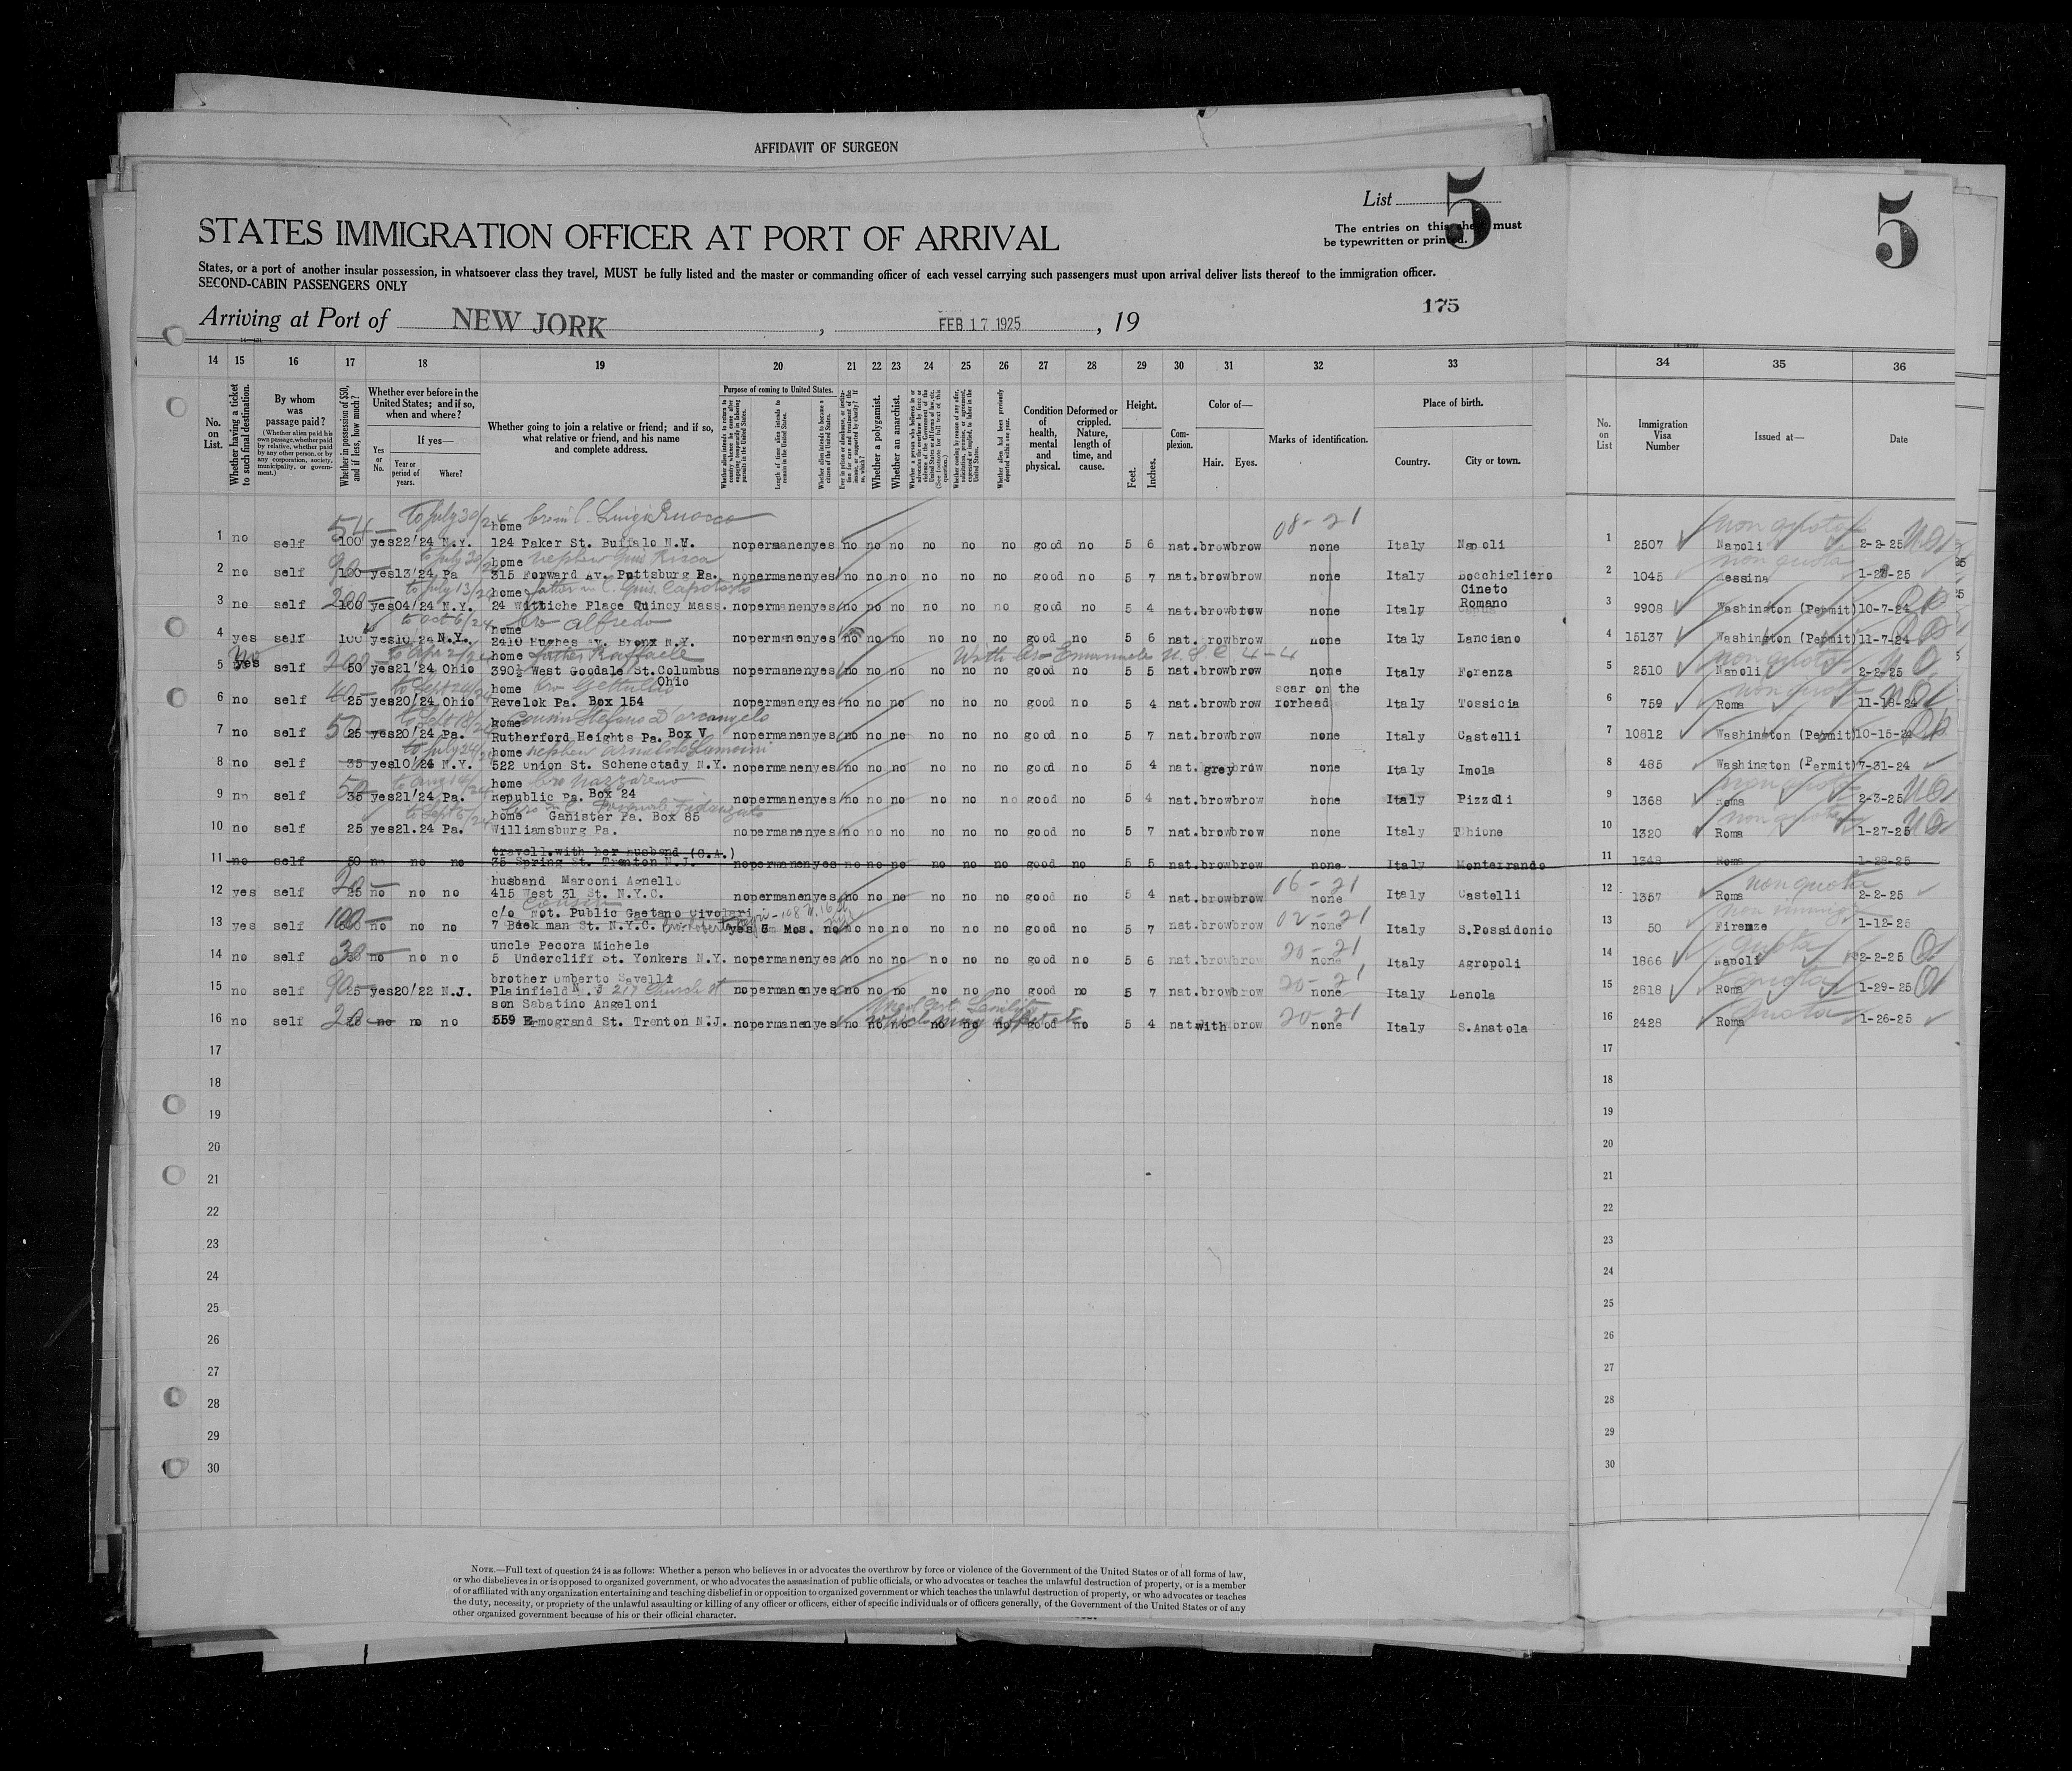 AFFIDAVIT OF SURGEON
List 5
5
The entries on this sheet must
be typewritten or printed.
STATES IMMIGRATION OFFICER AT PORT OF ARRIVAL
States, or a port of another insular possession, in whatsoever class they travel, MUST be fully listed and the master or commanding officer of each vessel carrying such passengers must upon arrival deliver lists thereof to the immigration officer.
SECOND-CABIN PASSENGERS ONLY
175
Arriving at Port of NEW JORK, FEB 17 1925, 19
14 15 16 17 18 19 20 21 22 23 24 25 26 27 28 29 30 31 32 33 34 35 36
No. on List.
Whether having a ticket to such final destination.
By whom was passage paid?
(Whether alien paid his own passage, whether paid by relative, whether paid by any other person, or by any corporation, society, municipality, or government.)
Whether in possession of $50, and if less, how much?
Whether ever before in the United States; and if so, when and where?
Yes or No.
If yes—
Year or period of years.
Where?
Whether going to join a relative or friend; and if so, what relative or friend, and his name and complete address.
Purpose of coming to United States.
Whether a polygamist.
Whether an anarchist.
Condition of health, mental and physical.
Deformed or crippled. Nature, length of time, and cause.
Height.
Feet. Inches.
Complexion.
Color of—
Hair. Eyes.
Marks of identification.
Place of birth.
Country. City or town.
No. on List
Immigration Visa Number
Issued at—
Date
to July 30/24 Luigi Ruocco 08-21 non quota
1 no self 54 100 yes 22/24 N.Y. home 124 Paker St. Buffalo N.Y. no permanen yes no no no no no no good no 5 6 nat. brow brow none Italy Napoli 1 2507 Napoli 2-2-25
2 no self 100 yes 13/24 Pa home nephew 315 Forward Av. Pittsburg Pa. no permanen yes no no no no no no good no 5 7 nat. brow brow none Italy Bocchigliero 2 1045 Messina 1-27-25
to July 13/24
3 no self 200 100 yes 04/24 N.Y. home 24 Wittiche Place Quincy Mass. no permanen yes no no no no no no good no 5 4 nat. brow brow none Italy Cineto Romano 3 9908 Washington (Permit) 10-7-24
to oct 6/24 bro alfredo
4 yes self 100 yes 10/24 N.Y. home 2410 Hughes av. Bronx N.Y. no permanen yes no no no no no no good no 5 6 nat. rowbrow none Italy Lanciano 4 15137 Washington (Permit) 11-7-24
father Raffaele With bro Emanuele U.S.C. 4-4 non quota
5 no yes self 200 50 yes 21/24 Ohio home 390½ West Goodale St. Columbus Ohio no permanen yes no no no no no no good no 5 5 nat. brow brow none Italy Forenza 5 2510 Napoli 2-2-25
to Sept 24/24 non quota
6 no self 40 25 yes 20/24 Ohio home Revelok Pa. Box 154 no permanen yes no no no no no no good no 5 4 nat. brow brow scar on the forhead Italy Tossicia 6 759 Roma 11-18-24
to Sept 18/24 cousin Stefano D'arcangelo
7 no self 50 25 yes 20/24 Pa. home Rutherford Heights Pa. Box V no permanen yes no no no no no no good no 5 7 nat. brow brow none Italy Castelli 7 10812 Washington (Permit) 10-15-24
to July 24/24 nephew
8 no self 35 yes 10/24 N.Y. home 522 Union St. Schenectady N.Y. no permanen yes no no no no no no good no 5 4 nat. grey brow none Italy Imola 8 485 Washington (Permit) 7-31-24
to aug 14/24 bro Nazzareno non quota
9 no self 50 35 yes 21/24 Pa. home Republic Pa. Box 24 no permanen yes no no no no no no good no 5 4 nat. brow brow none Italy Pizzoli 9 1368 Roma 2-3-25
to Sept 6/24 non quota
10 no self 25 yes 21.24 Pa. home Ganister Pa. Box 85 Williamsburg Pa. no permanen yes no no no no no no good no 5 7 nat. brow brow none Italy Thione 10 1320 Roma 1-27-25
11 no self 50 no no no travell.with her husband (C.A.) 35 Spring St. Trenton N.J. no permanen yes no no no no no no good no 5 5 nat. brow brow none Italy Monterrando 11 1348 Roma 1-28-25
12 yes self 20 25 no no no husband Marconi Agnello 415 West 31 St. N.Y.C. no permanen yes no no no no no no good no 5 4 nat. brow brow 16-21 none Italy Castelli 12 1357 Roma non quota 2-2-25
Cousin
13 yes self 100 no no no c/o Not. Public Gaetano Civoleri 7 Beek man St. N.Y.C. yes 6 Mos. no no no no no no no good no 5 7 nat. brow brow 02-21 none Italy S.Possidonio 13 50 Firenze 1-12-25
14 no self 30 no no no uncle Pecora Michele 5 Undercliff St. Yonkers N.Y. no permanen yes no no no no no no good no 5 6 nat. brow brow 20-21 none Italy Agropoli 14 1866 Napoli quota 2-2-25
15 no self 90 25 yes 20/22 N.J. brother Umberto Savelli Plainfield N.J 217 Church st no permanen yes no no no no no no good no 5 7 nat. brow brow 20-21 none Italy Lenola 15 2818 Roma quota 1-29-25
16 no self 20 25 no no no son Sabatino Angeloni 559 Ermogrand St. Trenton N.J. no permanen yes no no no no no no good no 5 4 nat. with brow 20-21 none Italy S.Anatola 16 2428 Roma quota 1-26-25
17 17
18 18
19 19
20 20
21 21
22 22
23 23
24 24
25 25
26 26
27 27
28 28
29 29
30 30
NOTE.—Full text of question 24 is as follows: Whether a person who believes in or advocates the overthrow by force or violence of the Government of the United States or of all forms of law,
or who disbelieves in or is opposed to organized government, or who advocates the assassination of public officials, or who advocates or teaches the unlawful destruction of property, or is a member
of or affiliated with any organization entertaining and teaching disbelief in or opposition to organized government or which teaches the unlawful destruction of property, or who advocates or teaches
the duty, necessity, or propriety of the unlawful assaulting or killing of any officer or officers, either of specific individuals or of officers generally, of the Government of the United States or of any
other organized government because of his or their official character.